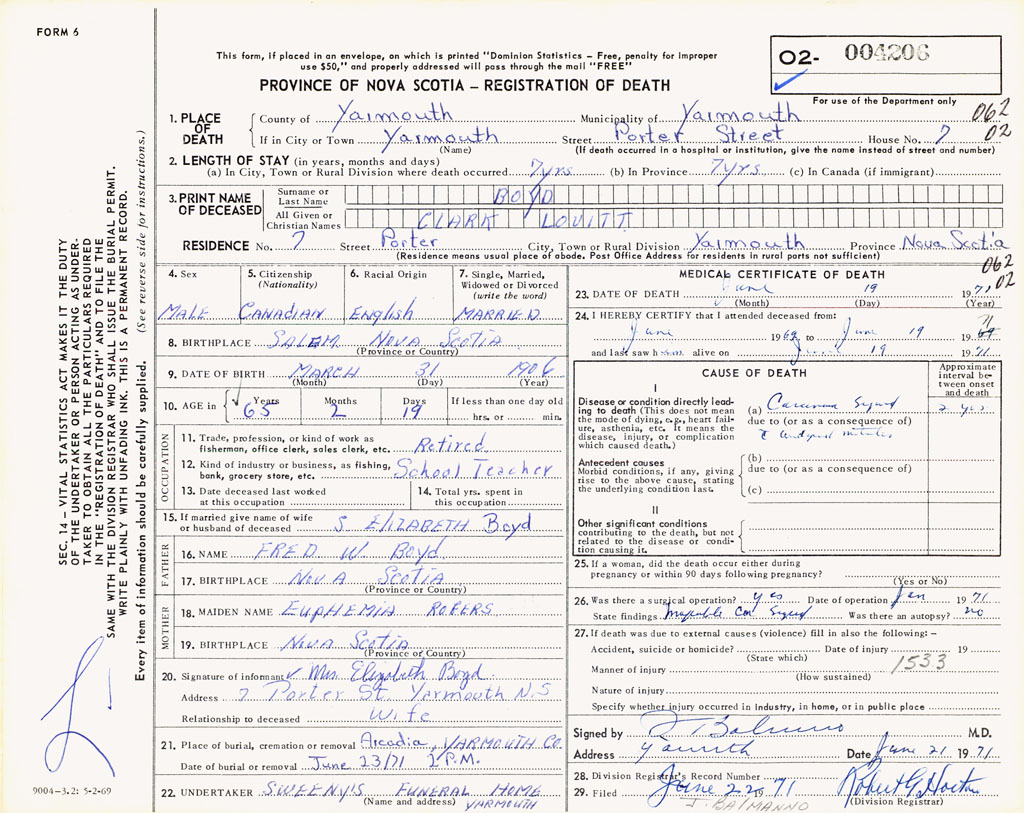 FORM 6
This form, if placed in an envelope, on which is printed "Dominion Statistics – Free, penalty for improper
use $50," and properly addressed will pass through the mail "FREE"
PROVINCE OF NOVA SCOTIA – REGISTRATION OF DEATH
02- 004206
For use of the Department only
062
02
1. PLACE OF DEATH County of Yarmouth Municipality of Yarmouth
If in City or Town Yarmouth Street Porter Street House No. 7
(Name) (If death occurred in a hospital or institution, give the name instead of street and number)
2. LENGTH OF STAY (in years, months and days)
(a) In City, Town or Rural Division where death occurred 7 yrs (b) In Province 7 yrs (c) In Canada (if immigrant)
3. PRINT NAME OF DECEASED Surname or Last Name BOYD
All Given or Christian Names CLARK LOVITT
RESIDENCE No. 7 Street Porter City, Town or Rural Division Yarmouth Province Nova Scotia
(Residence means usual place of abode. Post Office Address for residents in rural parts not sufficient)
062
02
4. Sex 5. Citizenship (Nationality) 6. Racial Origin 7. Single, Married, Widowed or Divorced (write the word)
MALE CANADIAN English MARRIED
8. BIRTHPLACE SALEM NOVA SCOTIA
(Province or Country)
9. DATE OF BIRTH MARCH 31 1906
(Month) (Day) (Year)
10. AGE in Years Months Days If less than one day old
65 2 19 hrs. or min.
OCCUPATION
11. Trade, profession, or kind of work as
fisherman, office clerk, sales clerk, etc. Retired
12. Kind of industry or business, as fishing,
bank, grocery store, etc. School Teacher
13. Date deceased last worked
at this occupation
14. Total yrs. spent in
this occupation
15. If married give name of wife
or husband of deceased S ELIZABETH Boyd
FATHER
16. NAME FRED W. Boyd
17. BIRTHPLACE NOVA SCOTIA
(Province or Country)
MOTHER
18. MAIDEN NAME EUPHEMIA ROGERS
19. BIRTHPLACE NOVA SCOTIA
(Province or Country)
20. Signature of informant Mrs Elizabeth Boyd
Address 7 Porter St. Yarmouth N.S
Relationship to deceased Wife
21. Place of burial, cremation or removal Arcadia, YARMOUTH Co.
Date of burial or removal June 23/71 2 P.M.
22. UNDERTAKER SWEENY'S FUNERAL HOME
(Name and address) YARMOUTH
MEDICAL CERTIFICATE OF DEATH
23. DATE OF DEATH June 19 1971
(Month) (Day) (Year)
24. I HEREBY CERTIFY that I attended deceased from:
June 1969 to June 19 1969 71
and last saw him alive on June 19 1971
CAUSE OF DEATH
Approximate interval between onset and death
I
Disease or condition directly leading to death (This does not mean
the mode of dying, e.g., heart failure, asthenia, etc. It means the
disease, injury, or complication
which caused death.)
(a) Carcinoma Sigmoid 2 yrs
due to (or as a consequence of)
Antecedent causes
Morbid conditions, if any, giving
rise to the above cause, stating
the underlying condition last.
(b)
due to (or as a consequence of)
(c)
II
Other significant conditions
contributing to the death, but not
related to the disease or condition causing it.
25. If a woman, did the death occur either during
pregnancy or within 90 days following pregnancy?
(Yes or No)
26. Was there a surgical operation? yes Date of operation Jan 1971
State findings Ca Sigmoid Was there an autopsy? no
27. If death was due to external causes (violence) fill in also the following: –
Accident, suicide or homicide? Date of injury 19
(State which) 1533
Manner of injury
(How sustained)
Nature of injury
Specify whether injury occurred in industry, in home, or in public place
Signed by J Balmanno M.D.
Address Yarmouth Date June 21 1971
28. Division Registrar's Record Number
29. Filed June 22 1971 Robert G Horton
J. BALMANNO (Division Registrar)
SEC. 14 – VITAL STATISTICS ACT MAKES IT THE DUTY
OF THE UNDERTAKER OR PERSON ACTING AS UNDERTAKER TO OBTAIN ALL THE PARTICULARS REQUIRED
IN THE "REGISTRATION OF DEATH" AND TO FILE THE
SAME WITH THE DIVISION REGISTRAR WHO SHALL ISSUE THE BURIAL PERMIT.
WRITE PLAINLY WITH UNFADING INK. THIS IS A PERMANENT RECORD.
Every item of information should be carefully supplied. (See reverse side for instructions.)
9004-3.2: 5-2-69